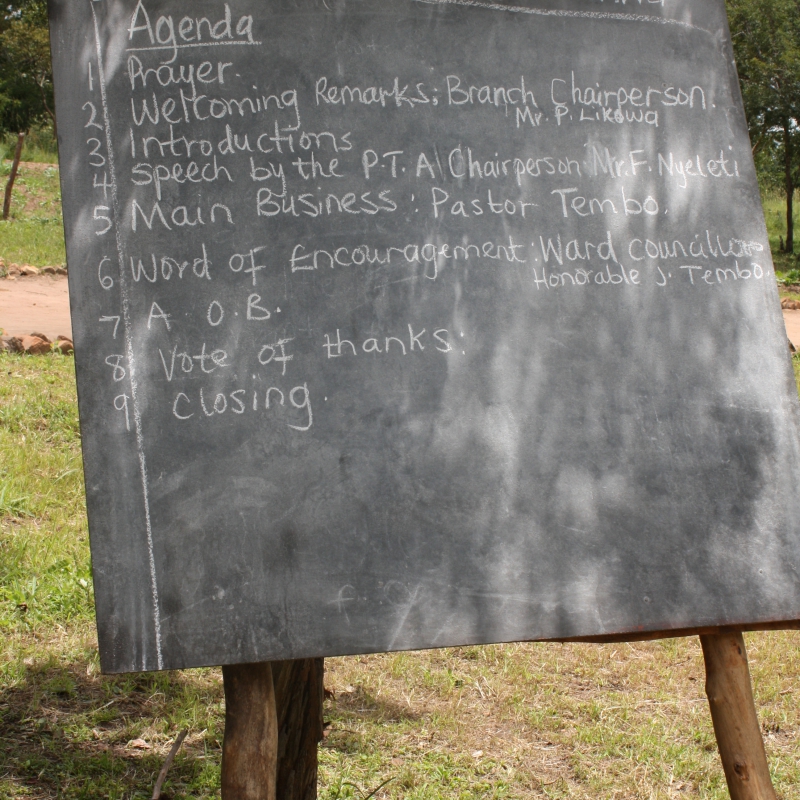 Agenda
1 Prayer.
2 Welcoming Remarks; Branch Chairperson.
Mr. P. Likowa
3 Introductions
4 speech by the P.T.A Chairperson Mr. F. Nyeleti
5 Main Business: Pastor Tembo.
6 Word of Encouragement: Ward councillor
Honorable J. Tembo.
7 A. O.B.
8 Vote of thanks:
9 closing.